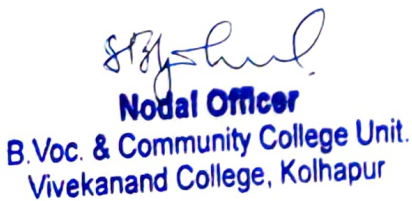 Nodal Officer
B.Voc. & Community College Unit.
Vivekanand College, Kolhapur